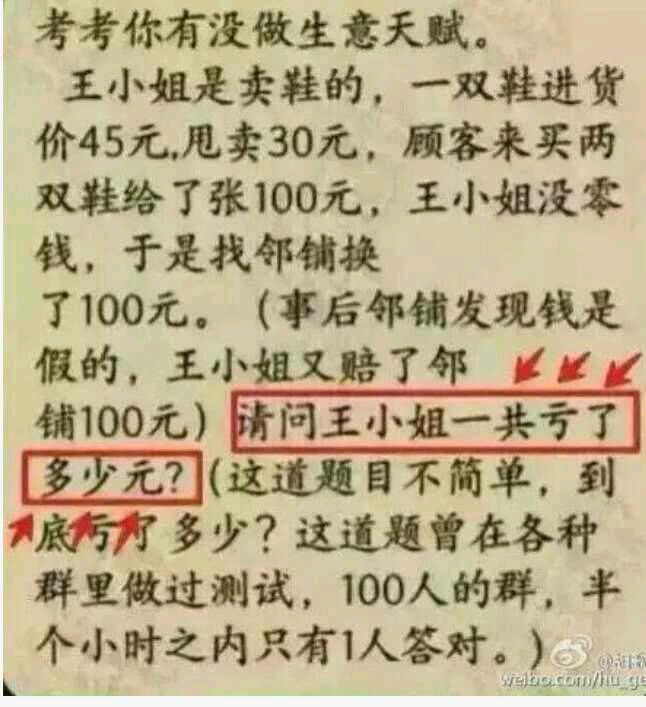 考考你有没做生意天赋。
王小姐是卖鞋的，一双鞋进货
价45元,甩卖30元，顾客来买两
双鞋给了张100元，王小姐没零
钱，于是找邻铺换
了100元。（事后邻铺发现钱是
假的，王小姐又赔了邻
铺100元）请问王小姐一共亏了
多少元？（这道题目不简单，到
底亏了多少？这道题曾在各种
群里做过测试，100人的群，半
个小时之内只有1人答对。）
weibo.com/hu_ge